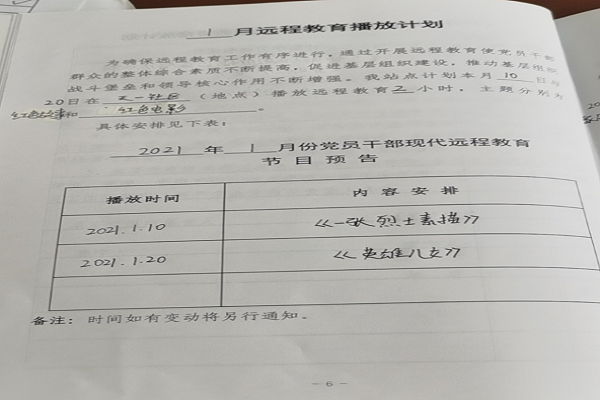 1 月远程教育播放计划
为确保远程教育工作有序进行，通过开展远程教育使党员干部
群众的整体综合素质不断提高，促进基层组织建设，推动基层组织
战斗堡垒和领导核心作用不断增强。我站点计划本月 10 日与
20日在 （地点）播放远程教育 2 小时，主题分别为
和 红色电影 。
具体安排见下表：
2021 年 1 月份党员干部现代远程教育
节目预告
播放时间 内容安排
2021.1.10 《一张烈士素描》
2021.1.20 《英雄儿女》
备注：时间如有变动将另行通知。
- 6 -